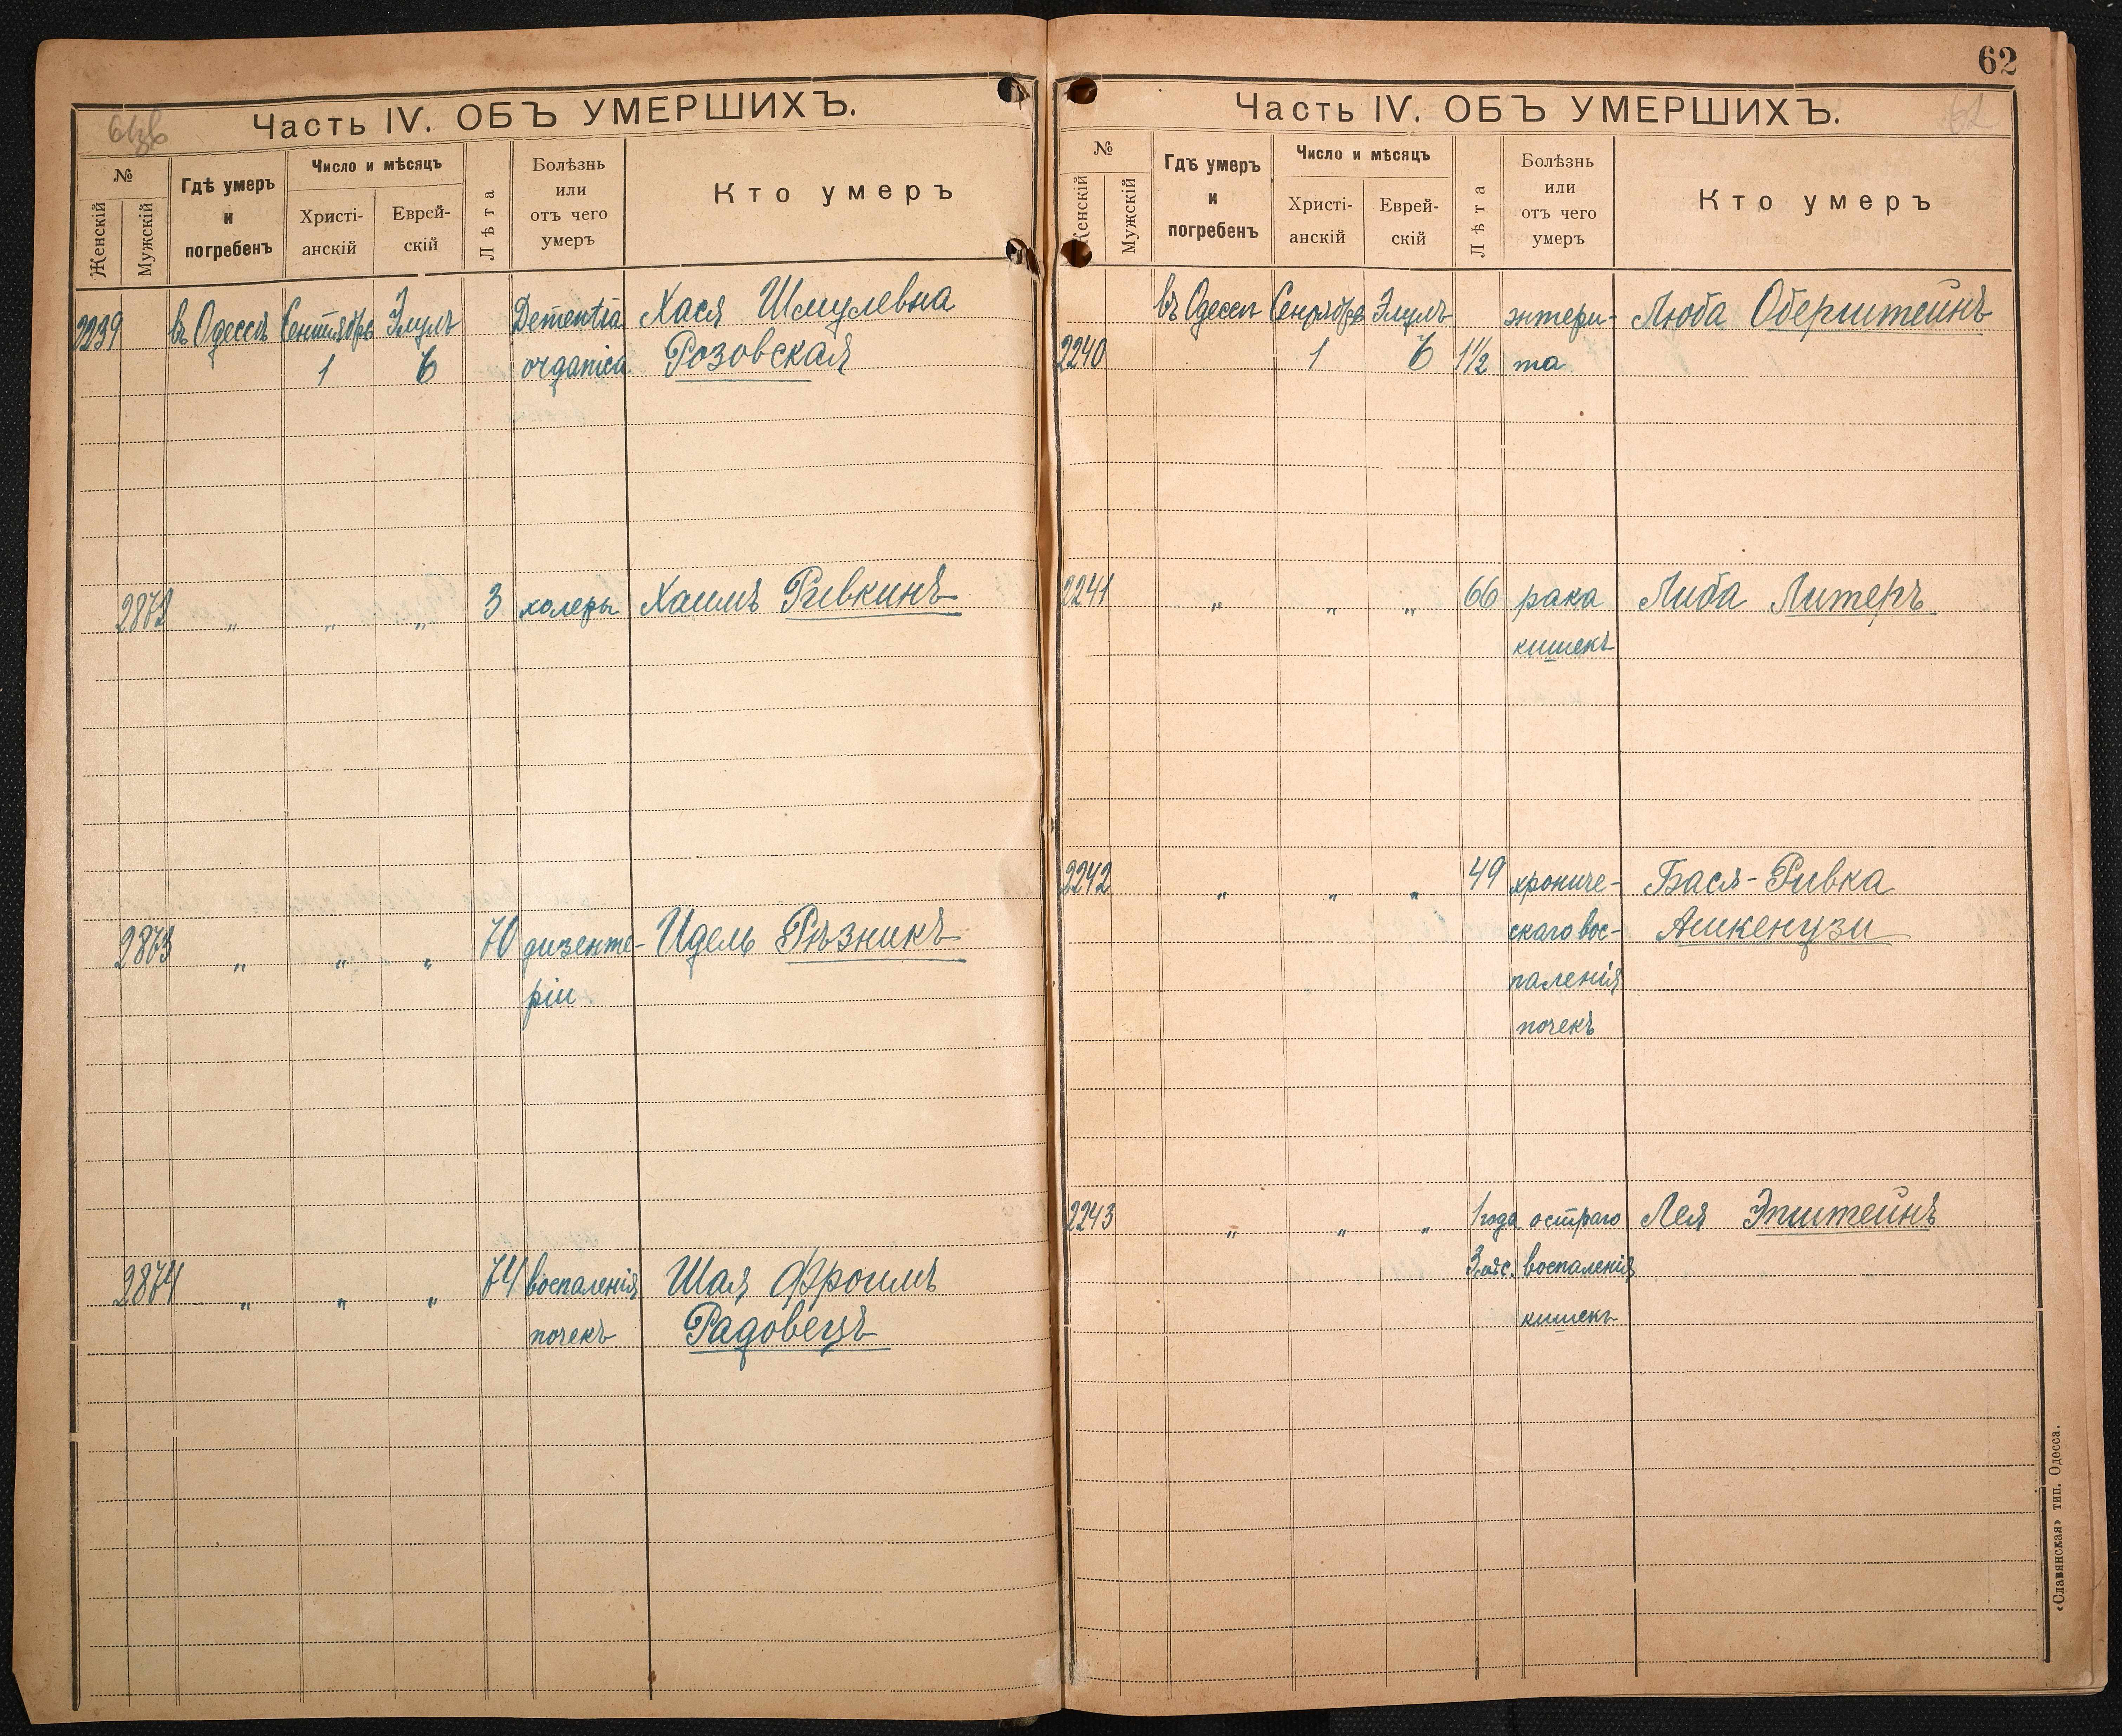 Часть IV. ОБЪ УМЕРШИХЪ.
№
Женскій
Мужскій
Гдѣ умеръ
и
погребенъ
Число и мѣсяцъ
Христі-
анскій
Еврей-
скій
Лѣта
Болѣзнь
или
отъ чего
умеръ
Кто умеръ
2239 въ Одессѣ Сентября Элулъ Dementia Хася Шмулевна
1 6 organica Розовская
2872 „ „ „ 3 холеры Хаимъ Ривкинъ
2873 „ „ „ 70 дизенте- Идель Рѣзникъ
ріи
2874 „ „ „ 74 воспаленія Шая Фроимъ
почекъ Радовецъ
62
62
Часть IV. ОБЪ УМЕРШИХЪ.
№
Женскій
Мужскій
Гдѣ умеръ
и
погребенъ
Число и мѣсяцъ
Христі-
анскій
Еврей-
скій
Лѣта
Болѣзнь
или
отъ чего
умеръ
Кто умеръ
въ Одессѣ Сентября Элулъ энтери- Люба Оберштейнъ
2240 1 6 1½ та
2241 „ „ „ 66 рака Либа Литеръ
кишекъ
2242 „ „ „ 49 хрониче- Бася-Ривка
скаго вос- Ашкенузи
паленія
почекъ
2243 „ „ „ 1 года остраго Лея Эпштейнъ
3 мѣс. воспаленія
кишекъ
«Славянская» тип. Одесса.